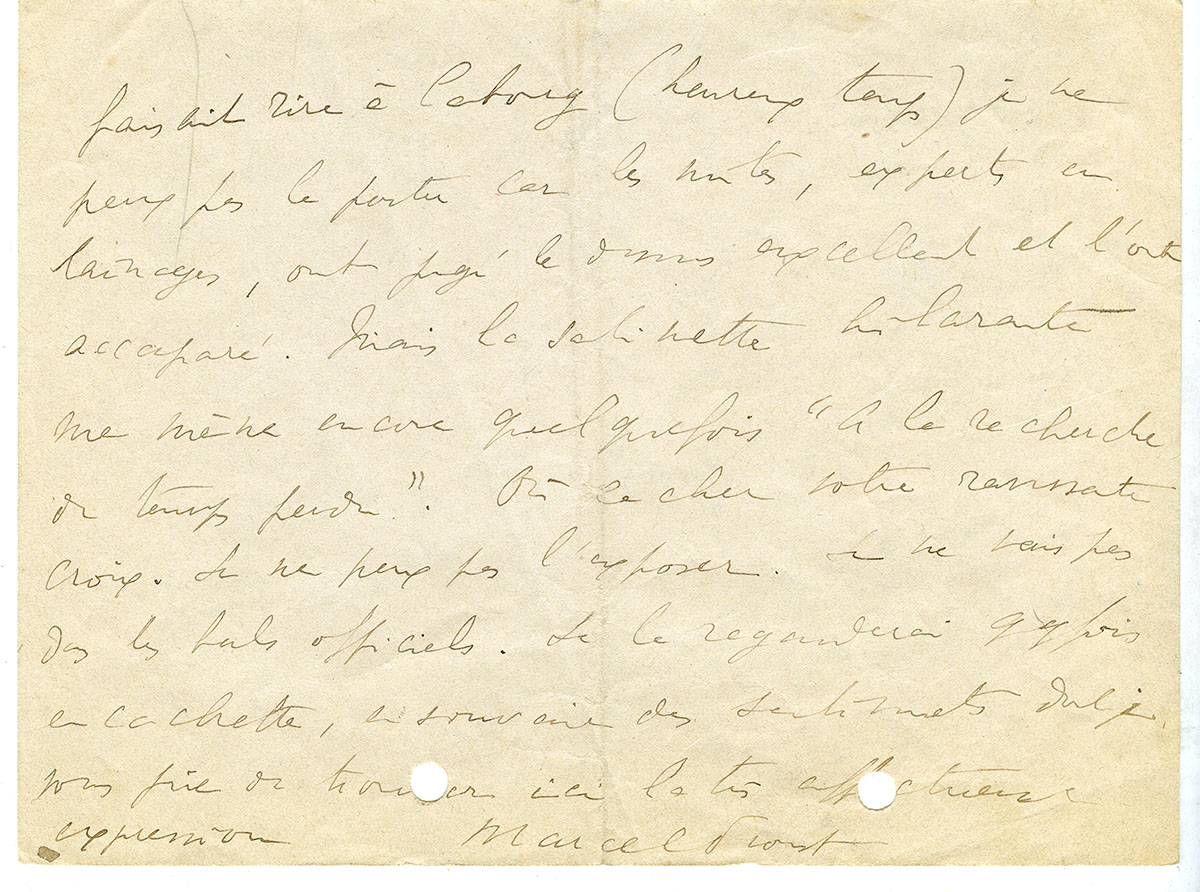 faisait rire à Cabourg (heureux temps) je ne
peux pas le porter car les mites, experts en
lainages, ont jugé le dessus excellent et l'ont
accaparé. Mais la satinette hilarante
me mène encore quelquefois "A la recherche
du temps perdu". Où cacher votre ravissante
croix. Je ne peux pas l'exposer. Je ne vais pas
dans les bals officiels. Je la regarderai qqfois
en cachette, en souvenir des sentiments dont je
vous prie de trouver ici la très affectueuse
expression Marcel Proust